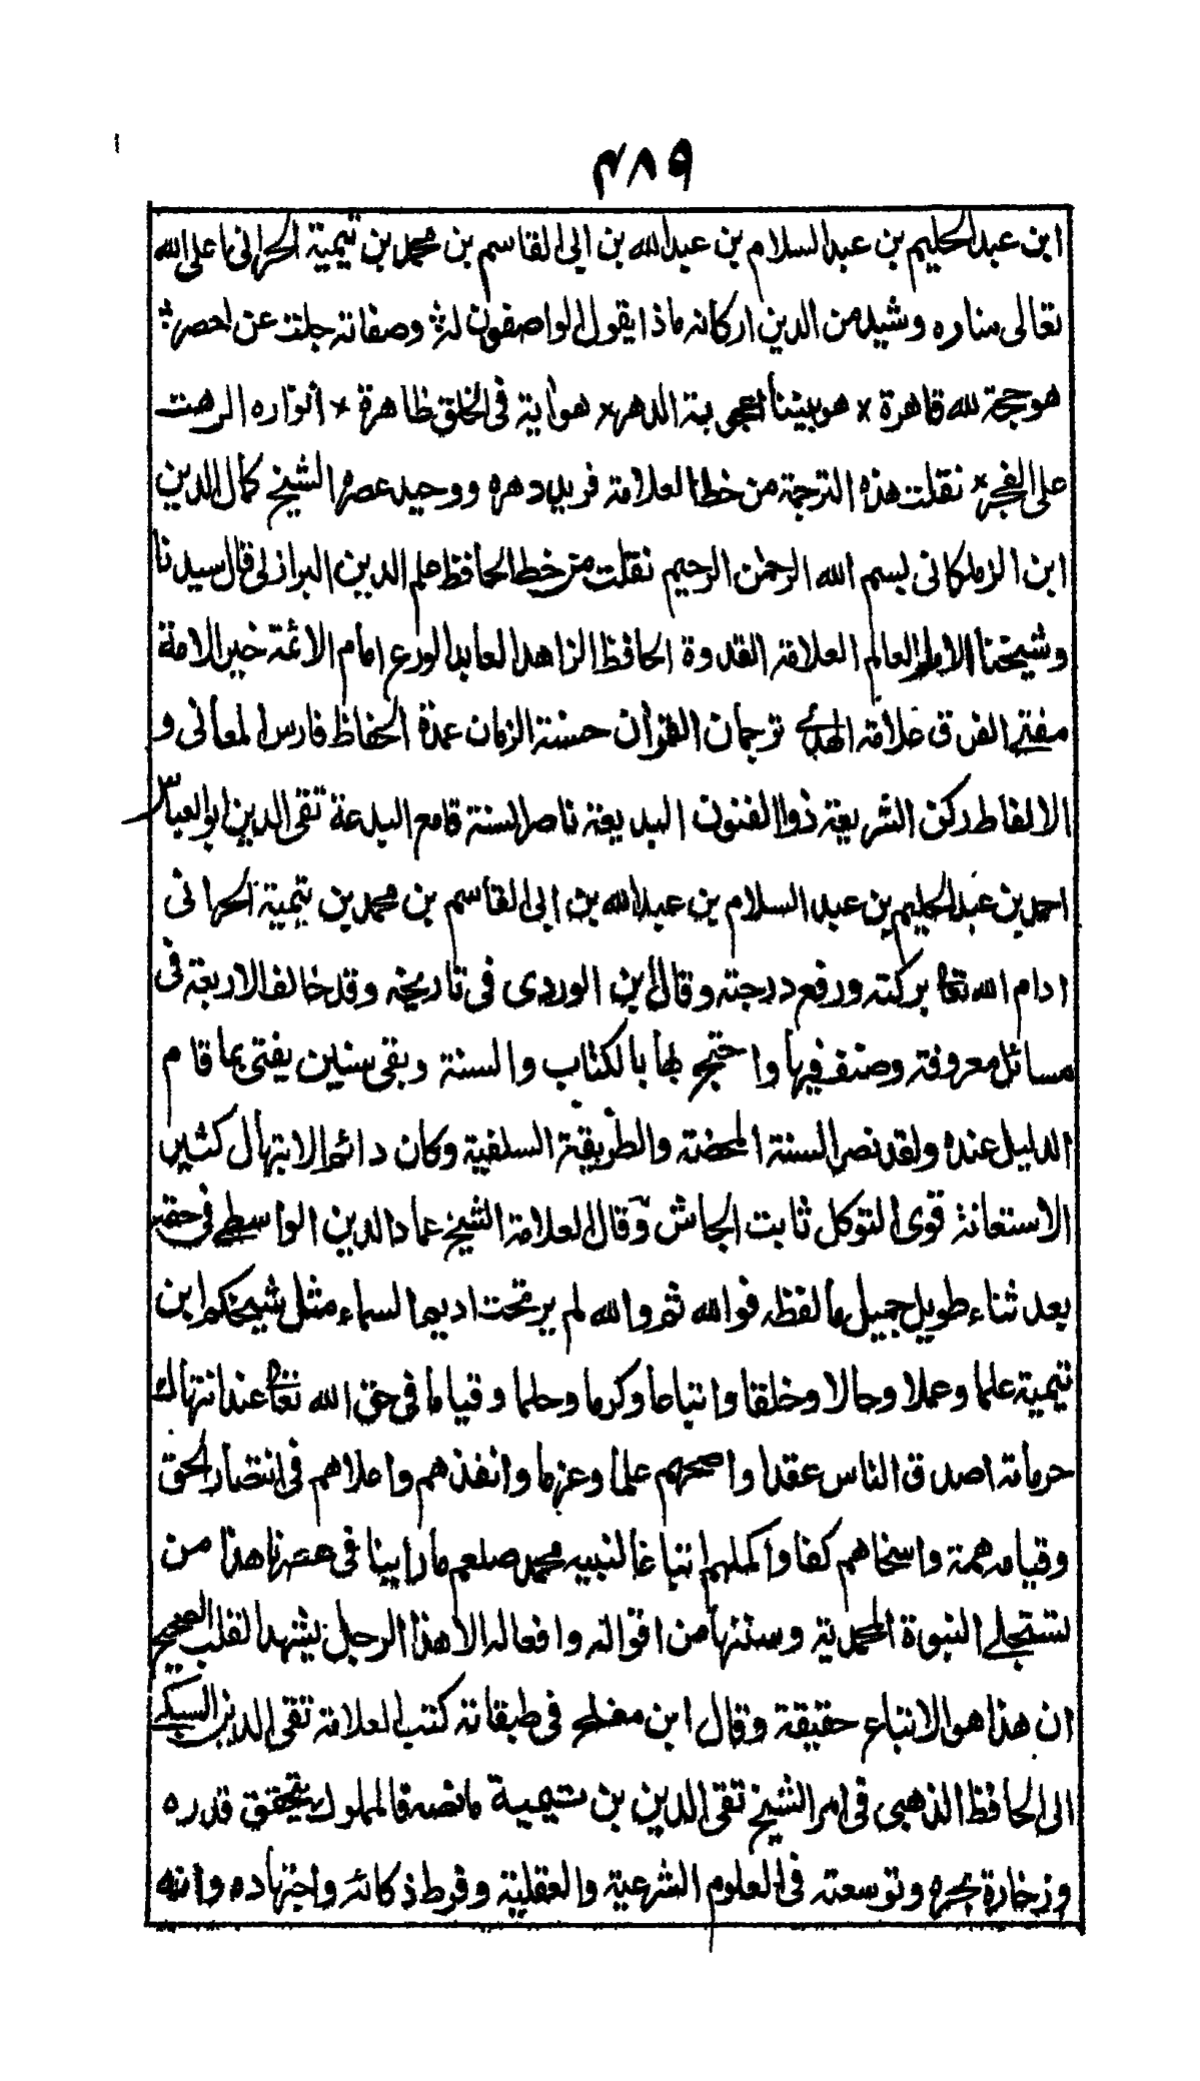 ٤٨٩
ابن عبد الحليم بن عبد السلام بن عبد الله بن ابى القاسم بن محمد بن تيمية الحرانى اعلى الله
تعالى مناره وشيد من الدين اركانه ماذا يقول الواصفون له وصفاته جلت عن الحصر
هو حجة لله قاهرة × هو بيننا اعجوبة الدهر × هو اية فى الخلق ظاهرة × انواره اربت
على الفجر × نقلت هذه الترجمة من خط العلامة فريد دهره ووحيد عصره الشيخ كمال الدين
ابن الزملكانى بسم الله الرحمن الرحيم نقلت من خط الحافظ علم الدين البرازلى قال سيدنا
وشيخنا الامام العالم العلامة القدوة الحافظ الزاهد العابد الورع امام الائمة خير الامة
مفتى الفرق علامة الهدى ترجمان القرآن حسنة الزمان عمدة الحفاظ فارس المعانى و
الالفاظ ركن الشريعة ذو الفنون البديعة ناصر السنة قامع البدعة تقى الدين ابو العباس
احمد بن عبد الحليم بن عبد السلام بن عبد الله بن ابى القاسم بن محمد بن تيمية الحرانى
ادام الله تعا بركته ورفع درجته وقال ابن الوردى فى تاريخه وقد خالف الاربعة فى
مسائل معروفة وصنف فيها واحتج لها بالكتاب والسنة وبقى سنين يفتى بما قام
الدليل عنده ولقد نصر السنة المحضة والطريقة السلفية وكان دائم الابتهال كثير
الاستعانة قوى التوكل ثابت الجاش وقال العلامة الشيخ عماد الدين الواسطى فى حقه
بعد ثناء طويل جميل ما لفظه فوالله ثم والله لم ير تحت اديم السماء مثل شيخكم ابن
تيمية علما وعملا وحالا وخلقا واتباعا وكرما وحلما وقياما فى حق الله تعا عند انتهاك
حرماته اصدق الناس عقدا واصحهم علما وعزما وانفذهم واعلاهم فى انتصار الحق
وقيامه همة واسخاهم كفا واكملهم اتباعا لنبيه محمد صلعم ما راينا فى عصرنا هذا من
تستجلى النبوة المحمدية وسنتها من اقواله وافعاله الا هذا الرجل يشهد القلب الصحيح
ان هذا هو الاتباع حقيقة وقال ابن مفلح فى طبقاته كتب العلامة تقى الدين السبكى
الى الحافظ الذهبى فى امر الشيخ تقى الدين بن تيمية ما نصه فالمملوك يتحقق قدره
وزخارة بحره وتوسعته فى العلوم الشرعية والعقلية وفرط ذكائه واجتهاده وانه